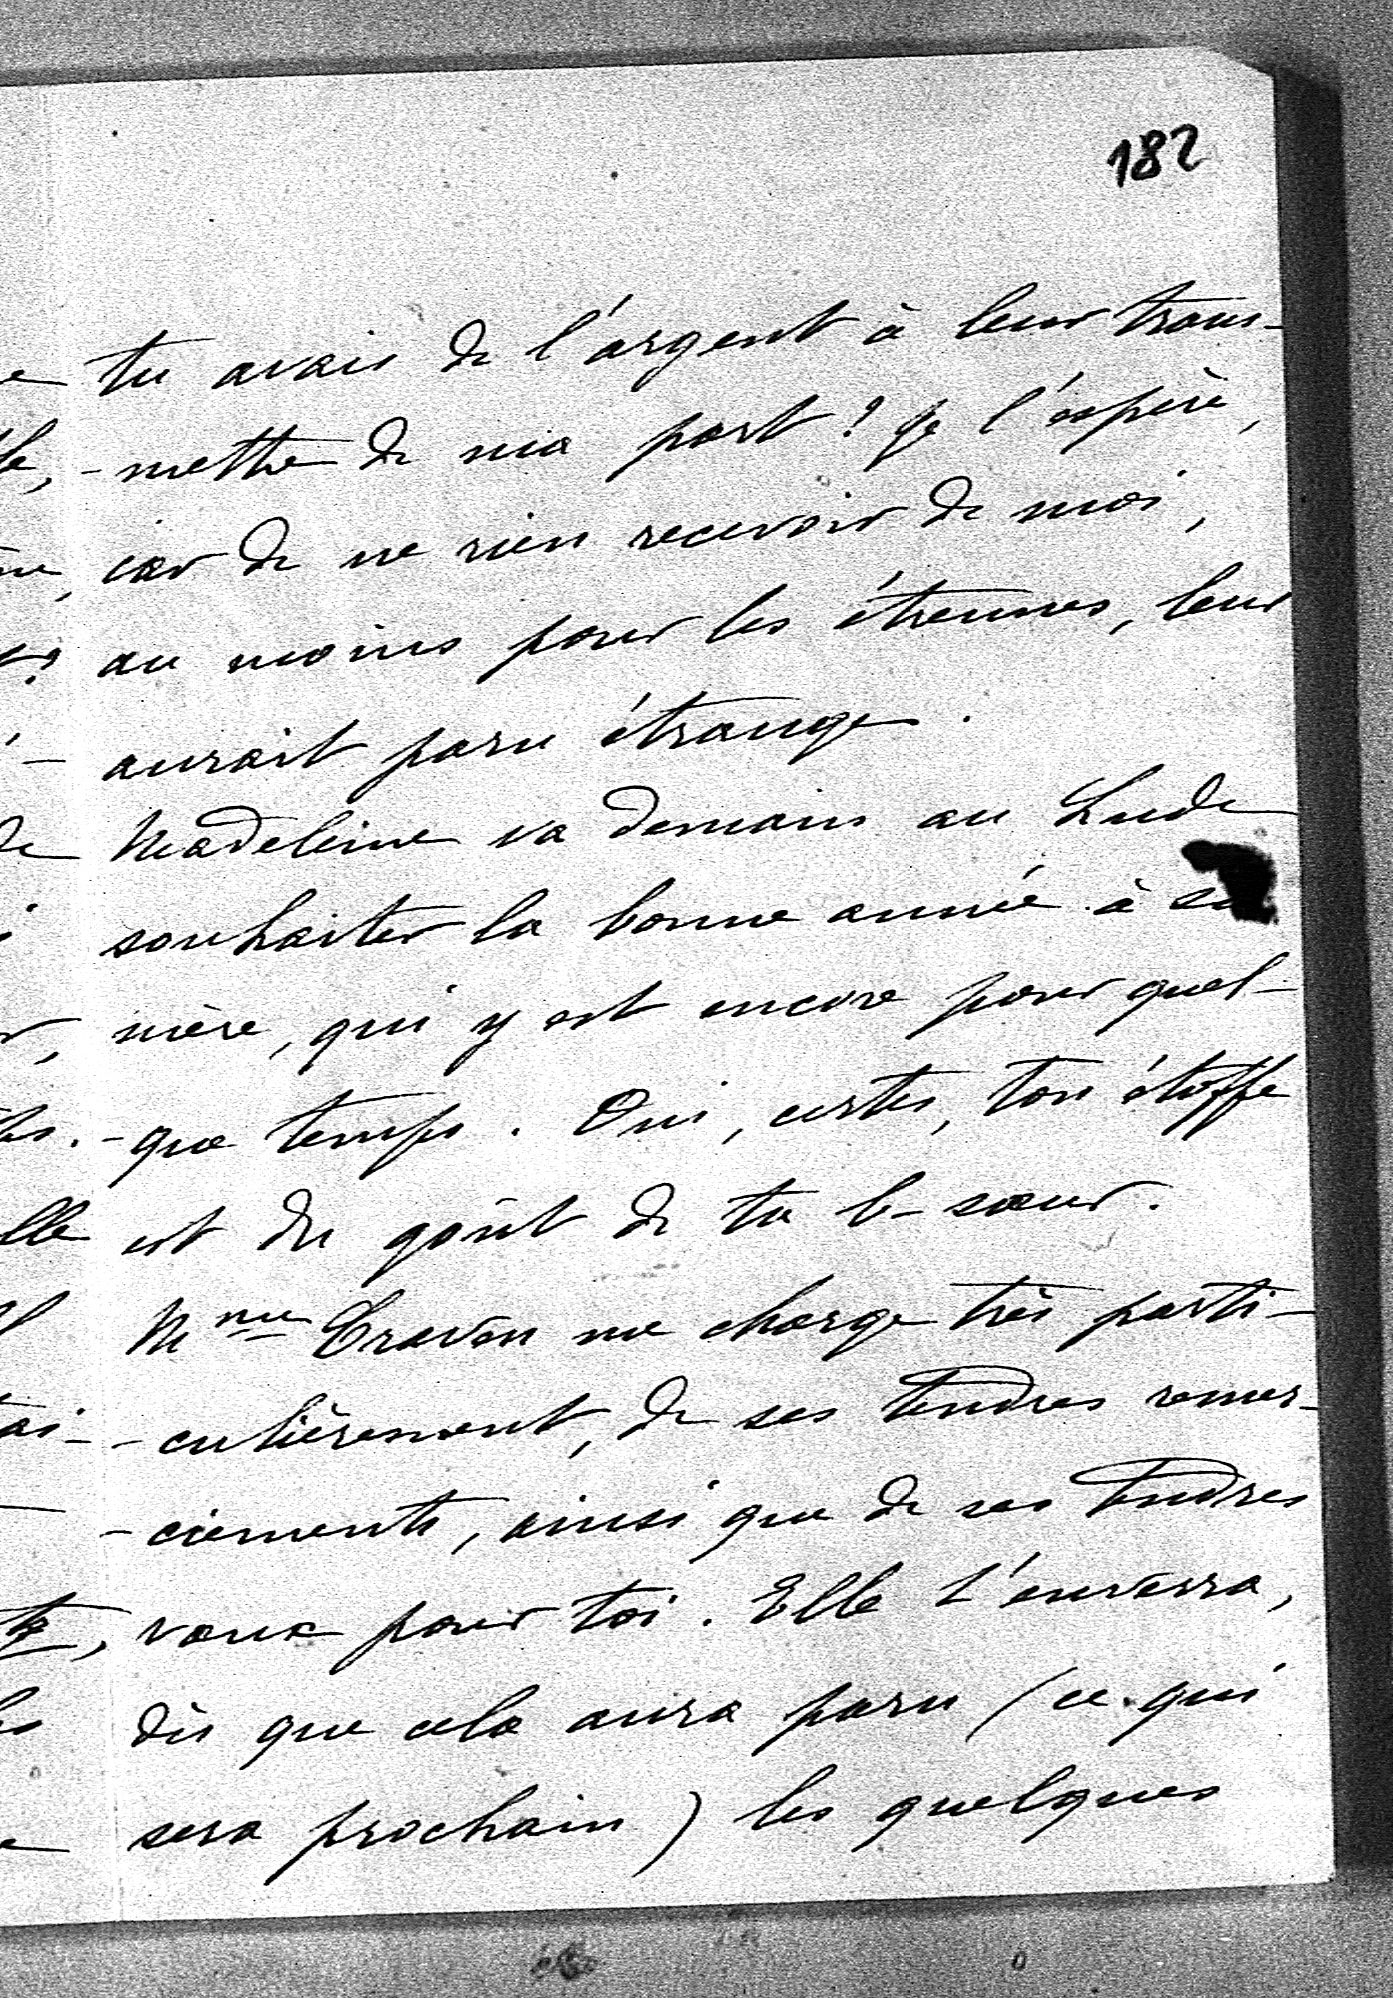 182
tu avais de l'argent à leur trans-
-mettre de ma part ? Je l'espère,
car de ne rien recevoir de moi,
au moins pour les étrennes, leur
aurait paru étrange.
Madeleine va demain au Lude
souhaiter la bonne année à sa
mère, qui y est encore pour quel-
-que temps. Oui, certes, ton étoffe
est du goût de ta b-sœur.
Mme Craven me charge très parti-
-culièrement, de ses tendres remer-
-ciements, ainsi que de ses tendres
vœux pour toi. Elle t'enverra,
dès que cela aura paru (ce qui
sera prochain) les quelques